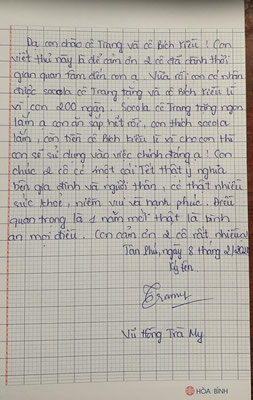 Dạ con chào cô Trang và cô Bích Kiều! Con
viết thư này là để cảm ơn 2 cô đã dành thời
gian quan tâm đến con ạ. Vừa rồi con có nhận
được socola cô Trang tặng và cô Bích Kiều lì
xì con 200 ngàn. Socola cô Trang tặng ngon
lắm ạ con ăn sắp hết rồi, con thích socola
lắm, còn tiền cô Bích Kiều lì xì cho con thì
con sẽ sử dụng vào việc chính đáng ạ! Con
chúc 2 cô có một cái Tết thật ý nghĩa
bên gia đình và người thân, có thật nhiều
sức khoẻ, niềm vui và hạnh phúc. Điều
quan trọng là 1 năm mới thật là bình
an mọi điều. Con cảm ơn 2 cô rất nhiều ạ!
Tân Phú, ngày 8 tháng 2/2024
Ký tên
Tramy
Vũ Hồng Trà My
HÒA BÌNH